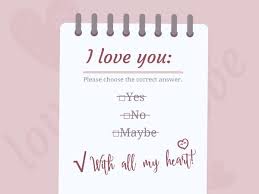 I love you:
Please choose the correct answer.
□Yes
□No
□Maybe
√ With all my heart!
love